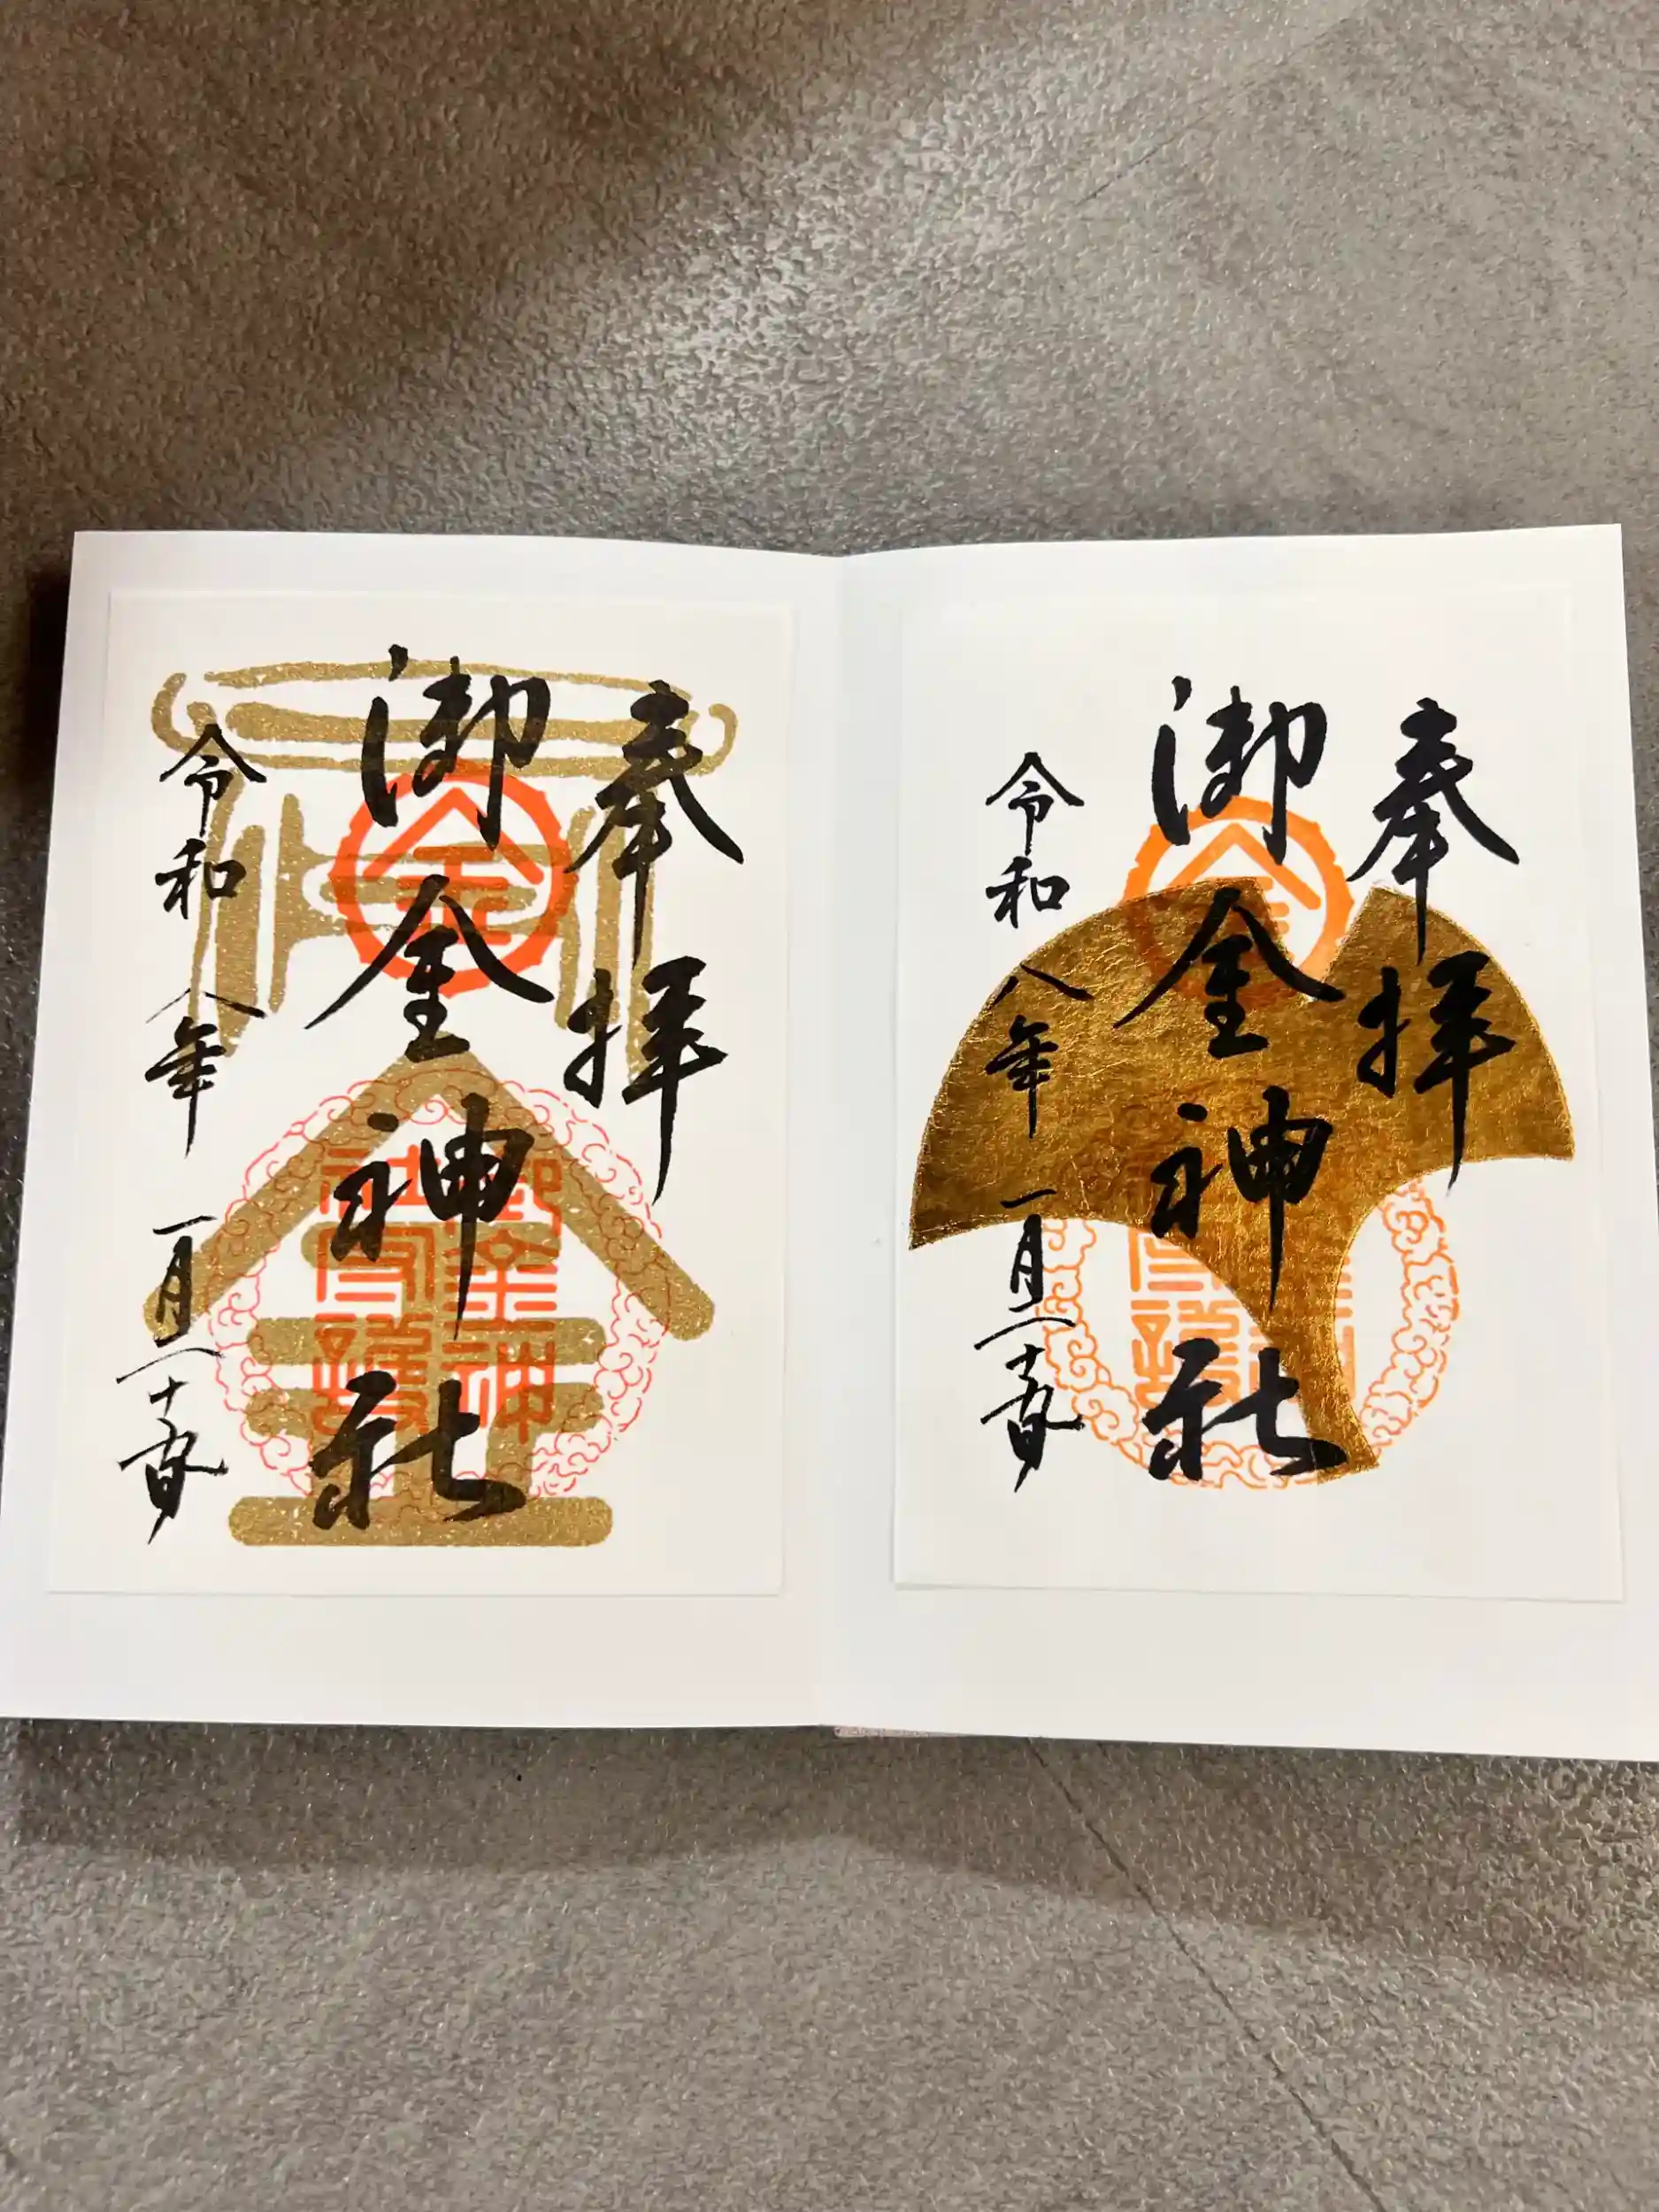 奉拝
御金神社
令和八年一月二十九日
奉拝
御金神社
令和八年一月二十九日
金